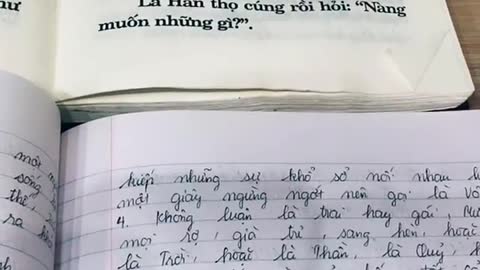 như
La Hán thọ cúng rồi hỏi: "Nàng
muốn những gì?".
một
sống
thế
ra
kiếp những sự khổ sở nối nhau
một giây ngừng ngớt nên gọi là Vô
4. Không luận là trai hay gái,
mọi rợ, già trẻ, sang hèn, hoặc
là Trời, hoặc là Thần, là Quỷ,